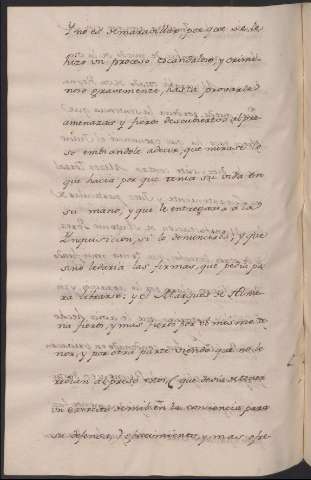 Y no es de maravillar, por que se le
hizo un proceso escandaloso, y crimi-
noso gravemente, hasta provarle
amenazas y fieros descubiertos al pre-
so embiandole a decir, que mirasse lo
que hacia por que tenia su vida en
su mano, y que le entregaria à la
Inquisicion, si lo denunciase; y que
sino le daria las firmas, que pedia pa-
ra librarse; y el Marques de Alme-
nara fieros, y mas fieros por el mesmo te-
nor, y por otra parte viendo que no se
redian al preso estos, (que devia de tener
un exercito de mill en la conciencia para
su defensa,) ofrecimientos, y mas ofre-